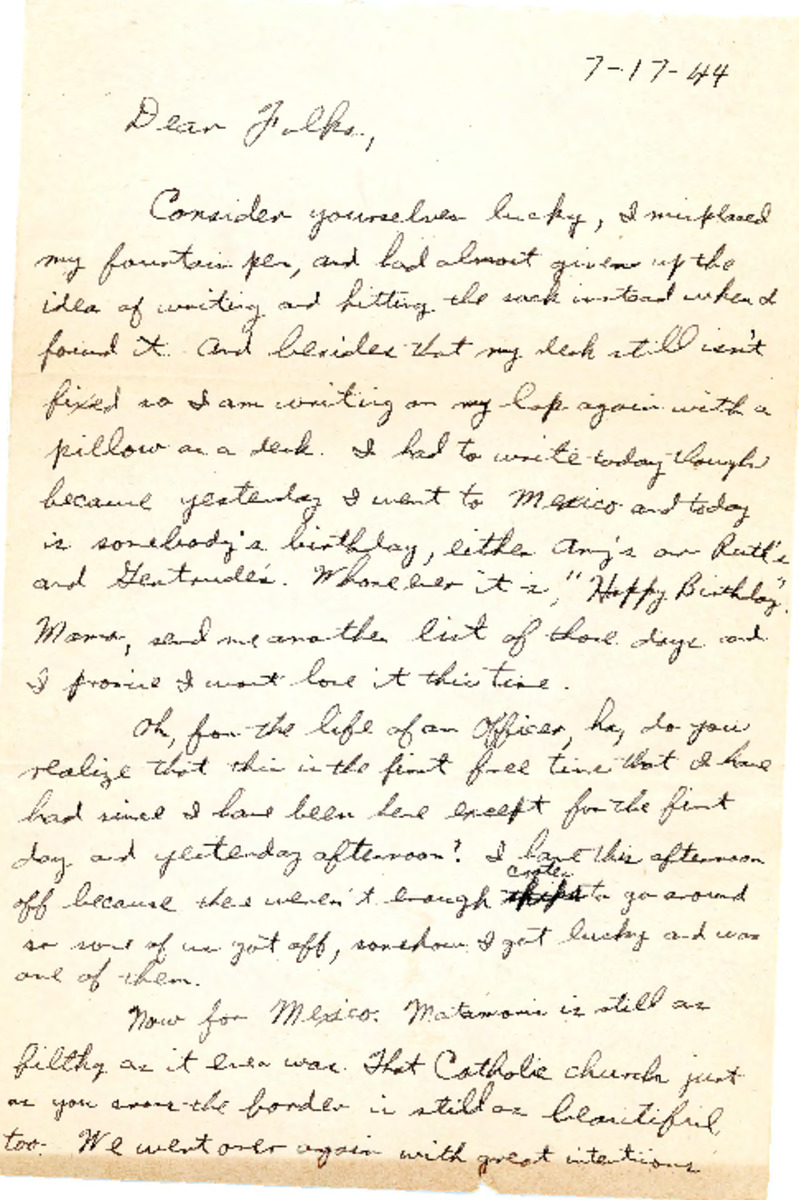 7-17-44
Dear Folks,
Consider yourselves lucky, I misplaced
my fountain pen, and had almost given up the
idea of writing and hitting the sack instead when I
found it. And besides that my desk still isn't
fixed so I am writing on my lap again with a
pillow as a desk. I had to write today though
because yesterday I went to Mexico and today
is somebody's birthday, either Amy's or Ruth's
and Gertrude's. Whose ever it is, "Happy Birthday".
Mama, send me another list of those days and
I promise I wont lose it this time.
Oh, for the life of an Officer, ha, do you
realize that this is the first free time that I have
had since I have been here except for the first
day and yesterday afternoon? I have this afternoon
off because there weren't enough crates to go around
so some of us got off, somehow I got lucky and was
one of them.
Now for Mexico. Matamoris is still as
filthy as it ever was. That Catholic church just
as you cross the border is still as beautiful,
too. We went over again with great intentions